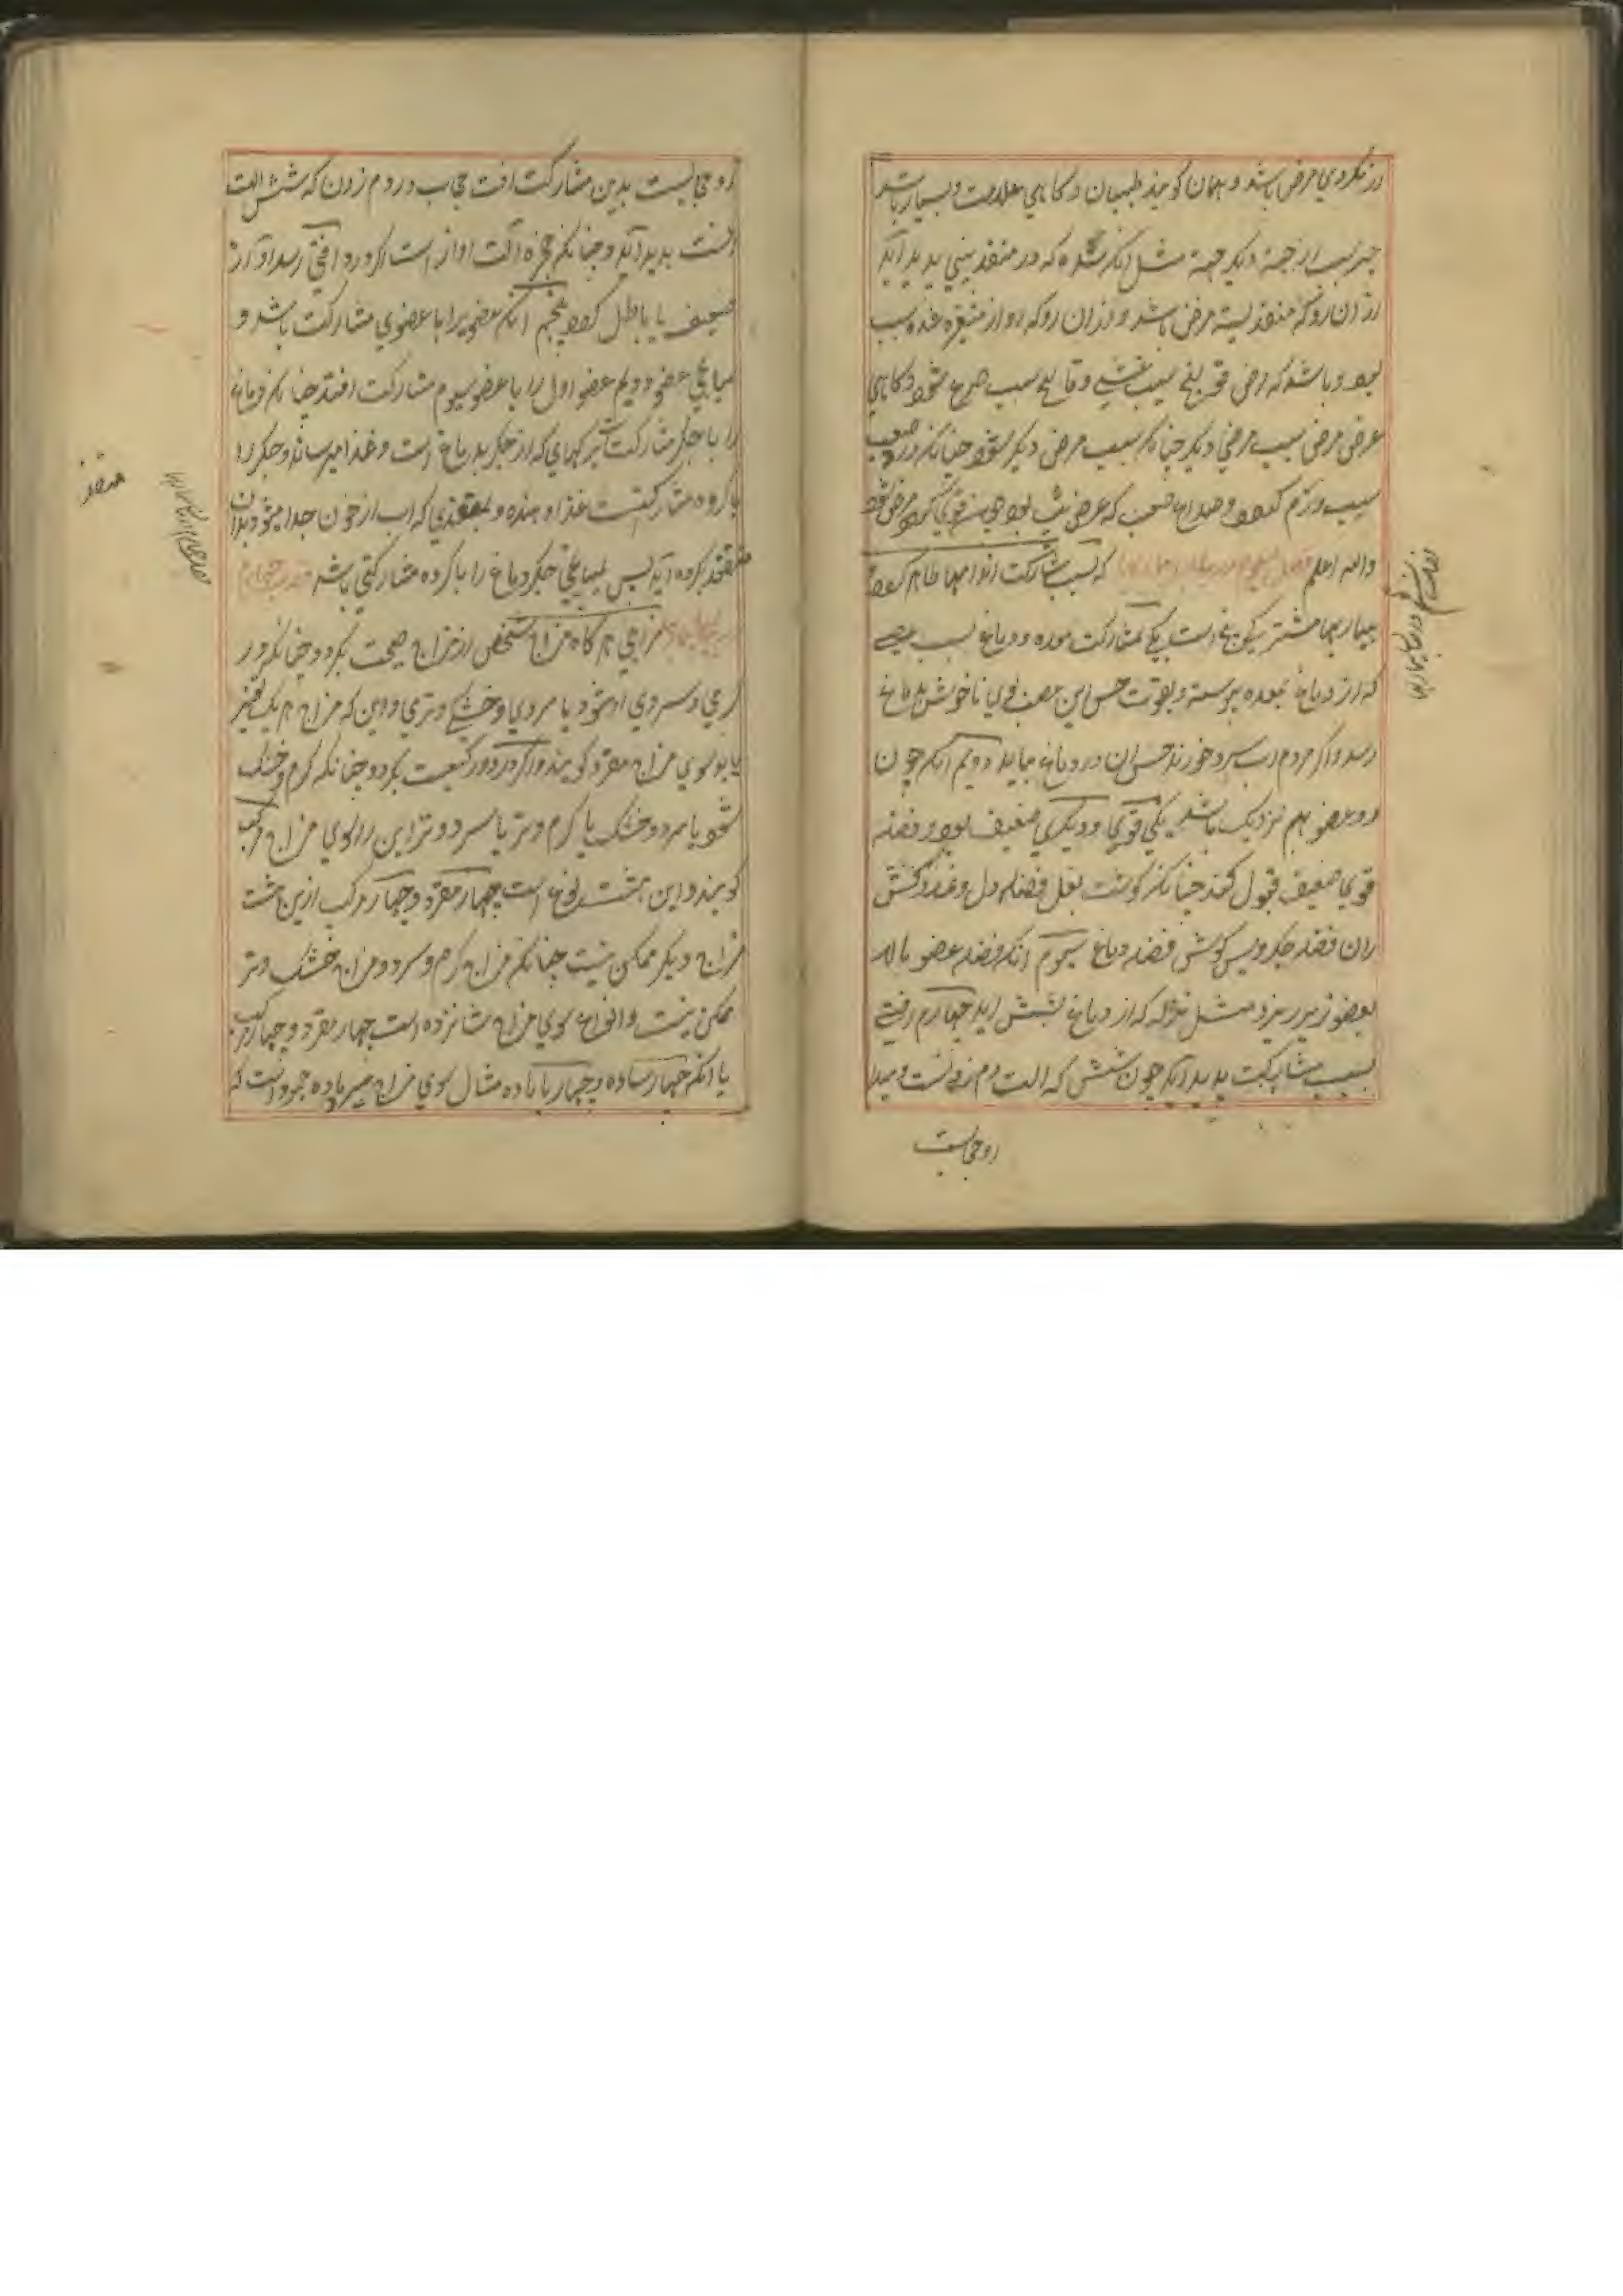 از نکردی مرض باشد و همان کویند طبیبان و کاهی علامت و بسیار باشد
چیز سبب از جهة دیکر جهة مثل انکه سده که در منفذ بینی پدید آید
از آن رو که منفذ بسته مرض باشد و از آن رو که آواز متغیر شده سبب
بود و باشد که مرض قولنج سبب غشی و فالج سبب صرع شود و کاهی
عرض مرض سبب مرض دیکر چنانکه سبب مرض دیکر شود چنانکه درد صعب
سبب ورم کردد و صداع صعب که عرض تب بود چون قوی کردد مرض شود
والله اعلم که بسبب مشارکت اندامها ظاهر کردد
بیماریها مشترک پنج نوع است یکی مشارکت معده و دماغ بسبب عصبی
که از دماغ بمعده پیوسته و بقوت حس این عصب بوی ناخوش بدماغ
رسد و اکر مردم آب سرد خورند حس آن در دماغ بیابد دویم آنکه چون
دو عضو بهم نزدیک باشد یکی قوی و دیکری ضعیف بود و فضله
قوی ضعیف قبول کند چنانکه کوشت بغل فضله دل و غدد کش
ران فضله جکر و پس کوش فضله دماغ سیوم آنکه فضله عضو بالا
بعضو زیر ریزد مثل نزله که از دماغ بشش آید چهارم آفتی
بسبب مشارکت پدید آید چون شش که آلت دم زدنست و مبدا
او حجابست
او حجابست بدین مشارکت آفت حجاب در دم زدن که شش آلت
آنست پدید آید و چنانکه حنجره آلت آواز است اکر در او آفتی رسد آواز
ضعیف یا باطل کردد پنجم آنکه عضویرا با عضوی مشارکت باشد و
بمیانجی عضو دویم عضو اول را با عضو سیوم مشارکت افتد چنانکه دماغ
را با جکر مشارکت بسبب رکهای که از جکر بدماغ است و غذا میرساند و جکر را
با کرده مشارکتست غذا دهنده و بمنفذی که آب از خون جدا میشود بدان
منفذ بکرده آید پس بمیانجی جکر دماغ را با کرده مشارکتی باشد
مزاجی هر کاه مزاج شخص از مزاج صحت بکردد چنانکه در
کرمی و سردی افزود یا سردی و خشکی و تری و این که مزاج هر یک تغیر
یابد سوی مزاج مفرد کویند و اکر در دو کیفیت بکردد چنانکه کرم و خشک
شود یا سرد و خشک یا کرم و تر یا سرد و تر این را سوی مزاج مرکب
کویند و این هشت نوع است چهار مفرد و چهار مرکب ازین هشت
مزاج دیکر ممکن نیست چنانکه مزاج کرم و سرد و مزاج خشک و تر
ممکن نیست و انواع سوی مزاج شانزده است چهار مفرد و چهار مرکب
یا آنکه چهار ساده و چهار با ماده مثال سوی مزاج غیر ماده است که
منفذ